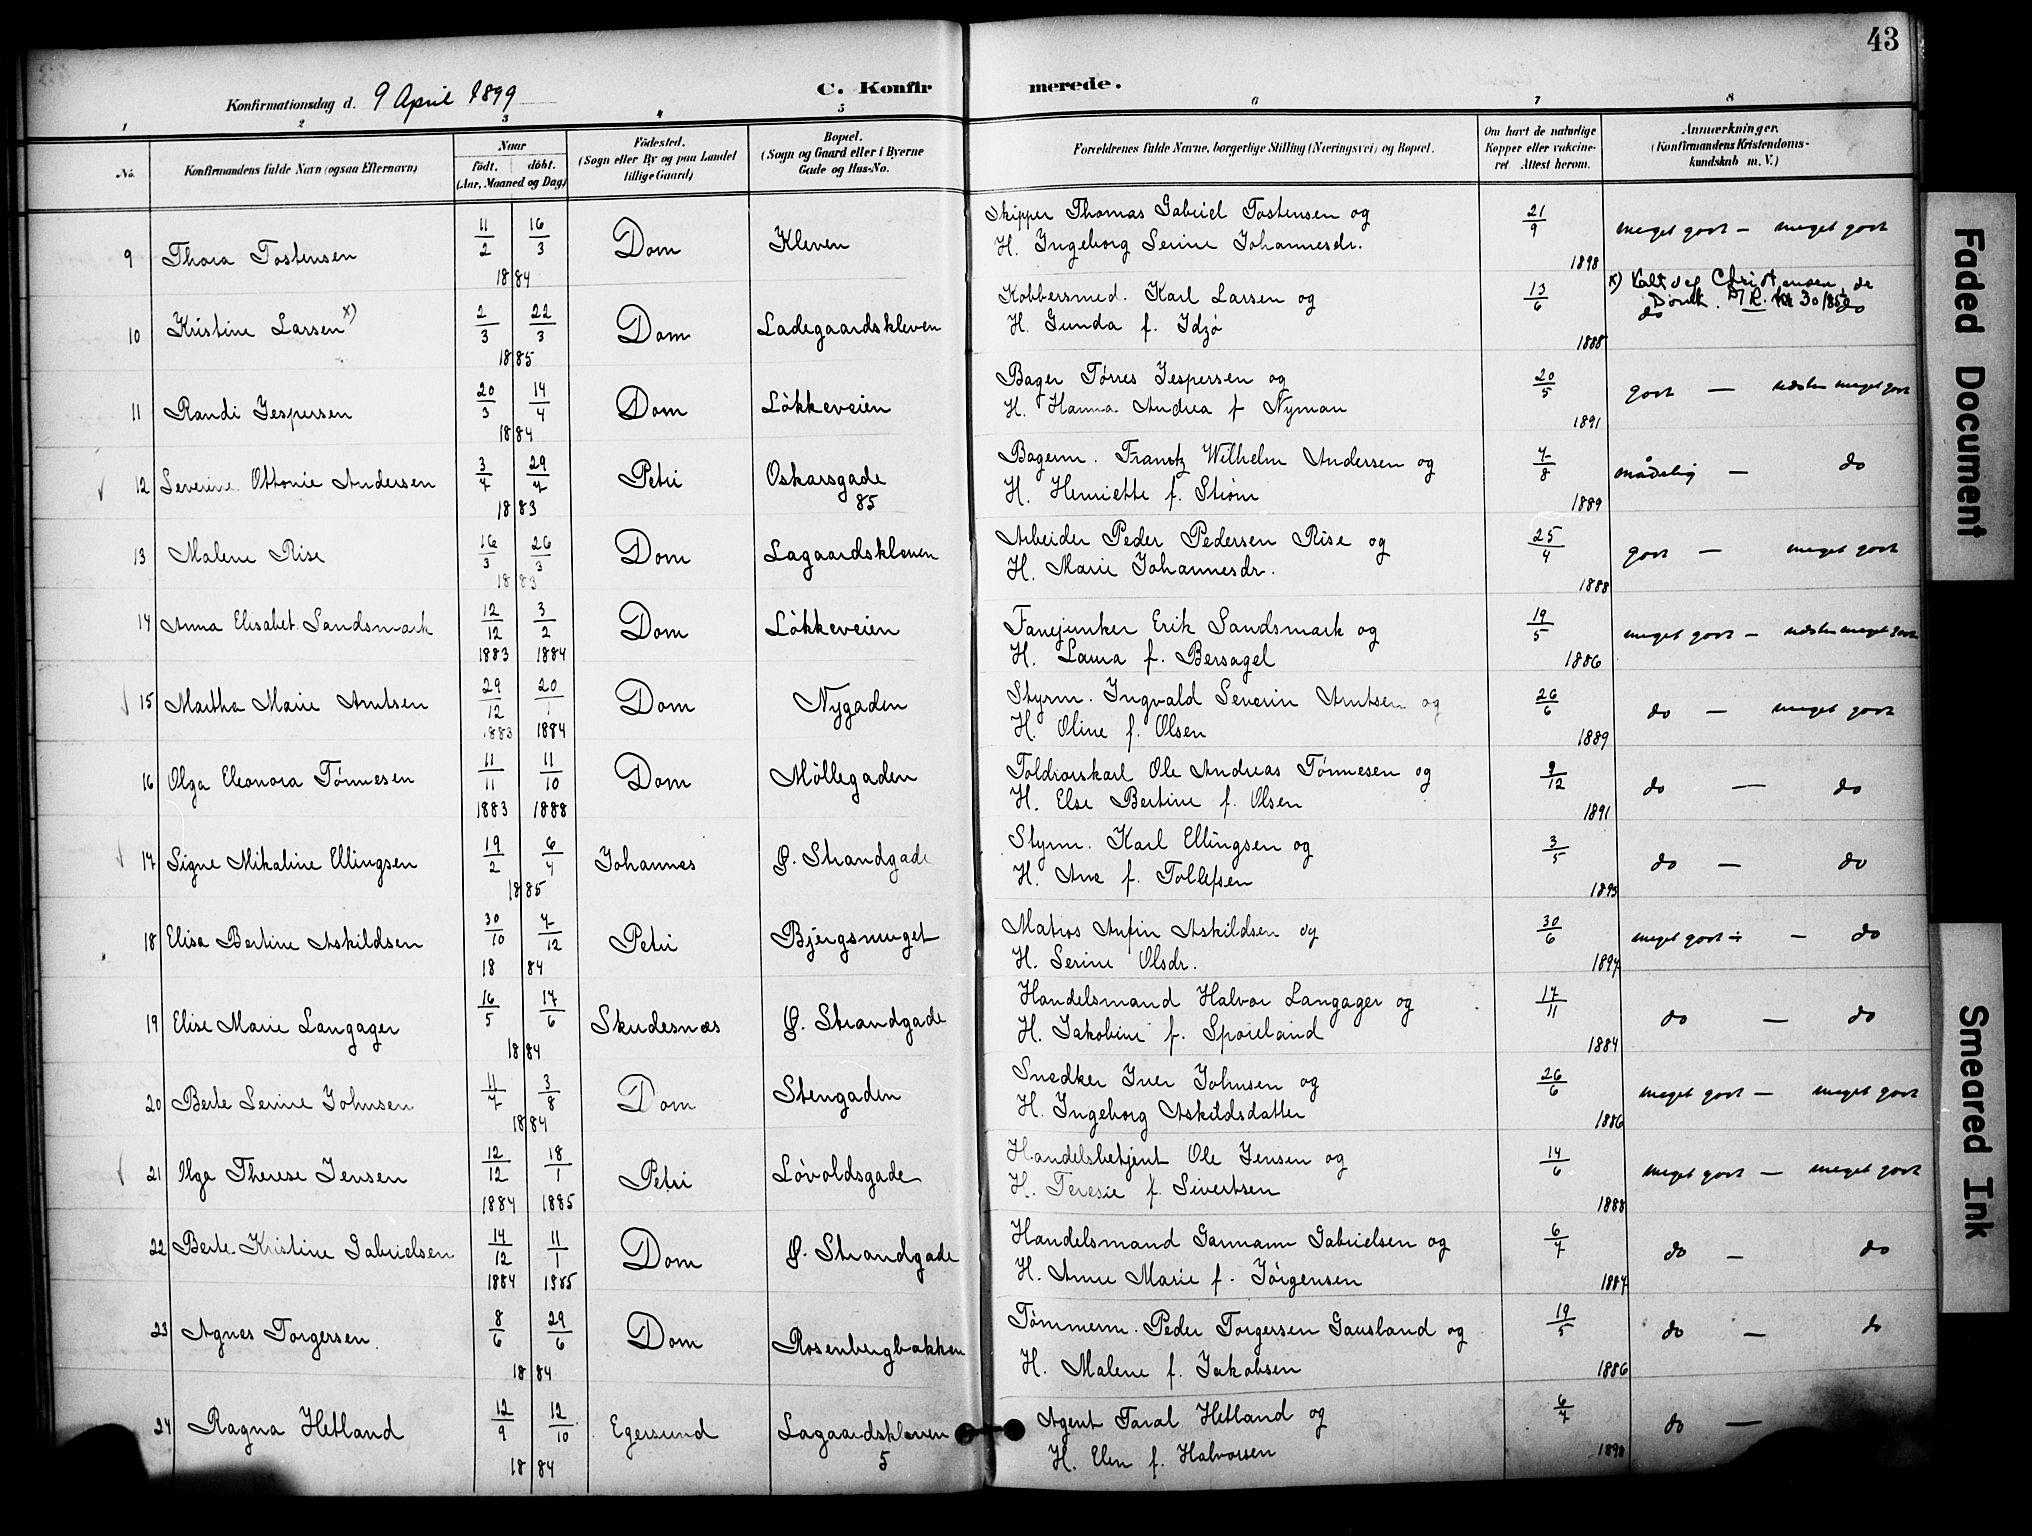 43
Konfirmationsdag d. 9 April 1899
C. Konfirmerede.
1 2 3 4 5 6 7 8
No.
Konfirmandens fulde Navn (ogsaa Efternavn)
Naar
födt. döbt.
(Aar, Maaned og Dag)
Födested.
(Sogn eller By og paa Landet
tillige Gaard)
Bopæl.
(Sogn og Gaard eller i Byerne
Gade og Hus-No.
Forældrenes fulde Navne, borgerlige Stilling (Næringsvei) og Bopæl.
Om havt de naturlige
Kopper eller vakcine-
ret Attest herom.
Anmærkninger.
(Konfirmandens Kristendoms-
kundskab m. V.)
9 Thora Tostensen 11/2 16/3 1884 Dom Kleven
Skipper Thomas Gabriel Tostensen og
H. Ingeborg Serine Johannesdr.
21/9 1898 meget godt — meget godt
10 Kristine Larsen x) 2/3 22/3 1885 Dom Ladegaardskleven
Kobbersmed. Karl Larsen og
H. Gunda f. Idzö
13/6 1888 x) Kaldt sig Christensen, se
do do
11 Randi Jespersen 20/3 14/4 1884 Dom Lökkeveien
Bager Törres Jespersen og
H. Hanna Andrea f. Nyman
20/5 1891 godt — næsten meget godt
12 Severine Ottonie Andersen 3/7 29/7 1883 Petri Oskarsgade
85
Bagerm. Frantz Wilhelm Andersen og
H. Henriette f. Ström
7/8 1889 mådelig — do
13 Malene Rise 16/3 26/3 1883 Dom Lagaardskleven
Arbeider Peder Pedersen Rise og
H. Marie Johannesdr.
25/4 1888 godt — meget godt
14 Anna Elisabet Sandsmark 12/12 1883 3/2 1884 Dom Lökkeveien
Fanejunker Erik Sandsmark og
H. Laura f. Bersagel
19/5 1886 meget godt — næsten meget godt
15 Martha Marie Arntsen 29/12 1883 20/1 1884 Dom Nygaden
Styrm. Ingvald Severin Arntsen og
H. Oline f. Olsen
26/6 1889 do — meget godt
16 Olga Eleonora Tönnesen 11/11 1883 11/10 1888 Dom Möllegaden
Toldrorskarl Ole Andreas Tönnesen og
H. Else Bertine f. Olsen
9/12 1891 do — do
17 Signe Mikaline Ellingsen 19/2 6/4 1885 Johannes Ø. Strandgade
Styrm. Karl Ellingsen og
H. Ane f. Tollefsen
3/5 1893 do — do
18 Elisa Bertine Askildsen 30/10 7/12 1884 Petri Bjergsmuget
Matros Anfin Askildsen og
H. Serine Olsdr.
30/6 1897 meget godt ÷ — do
19 Elise Marie Langager 16/5 17/6 1884 Skudesnæs Ø. Strandgade
Handelsmand Halvor Langager og
H. Jakobine f. Sporeland
17/11 1884 do — do
20 Berte Serine Johnsen 11/7 3/8 1884 Dom Stengaden
Snedker Iver Johnsen og
H. Ingeborg Askildsdatter
26/6 1886 meget godt — meget godt
21 Olga Therese Jensen 12/12 1884 18/1 1885 Petri Lövoldsgade
Handelsbetjent Ole Jensen og
H. Teresie f. Sivertsen
14/6 1888 meget godt — meget godt
22 Berte Kristine Gabrielsen 14/12 1884 11/1 1885 Dom Ø. Strandgade
Handelsmand Garmann Gabrielsen og
H. Anne Marie f. Jörgensen
6/7 1887 do — do
23 Agnes Torgersen 8/6 29/6 1884 Dom Rosenbergbakken
Tömmerm. Peder Torgersen Gausland og
H. Malene f. Jakobsen
19/5 1886 do — do
24 Ragna Hetland 12/9 12/10 1884 Egersund Lagaardskleven
5
Agent Taral Hetland og
H. Elen f. Halvorsen
6/7 1898 do —
Faded Document
Smeared Ink